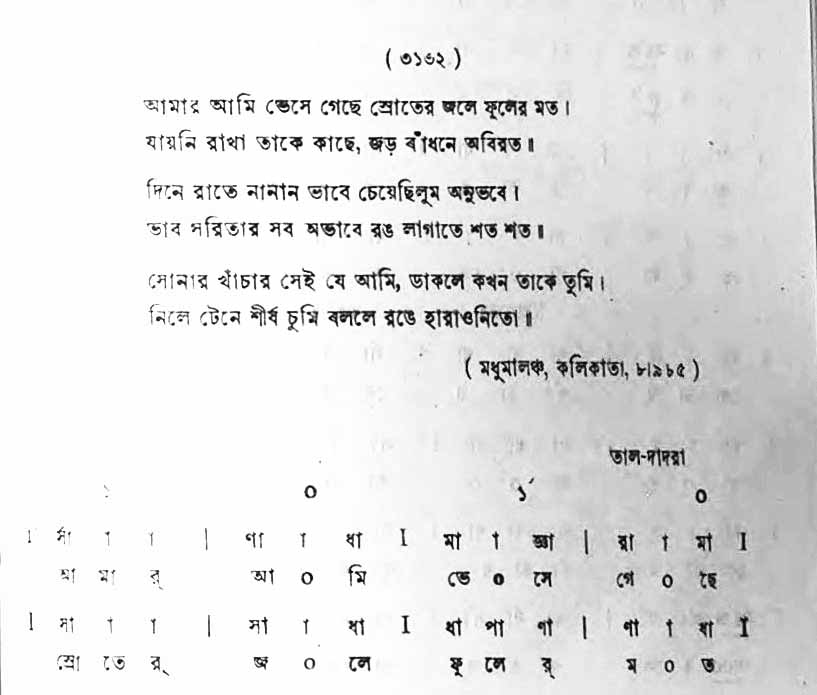 ( ৩১৬২ )
আমার আমি ভেসে গেছে স্রোতের জলে ফূলের মত।
যায়নি রাখা তাকে কাছে, জড় বাঁধনে অবিরত॥
দিনে রাতে নানান ভাবে চেয়েছিলুম অনুভবে।
ভাব সরিতার সব অভাবে রঙ লাগাতে শত শত॥
সোনার খাঁচার সেই যে আমি, ডাকলে কখন তাকে তুমি।
নিলে টেনে শীর্ষ চুমি বললে রঙে হারাওনিতো॥
( মধুমালঞ্চ, কলিকাতা, ৮।৯৮৫ )
তাল-দাদরা
১ ০ ১´ ০
I র্সা া া | ণা া ধা I মা া জ্ঞা | রা া মা I
আ মা র্ আ ০ মি ভে ০ সে গে ০ ছে
I সা া া | সা া ধা I ধা পা ণা | ণা া ধা I
স্রো তে র্ জ ০ লে ফূ লে র্ ম ০ ত